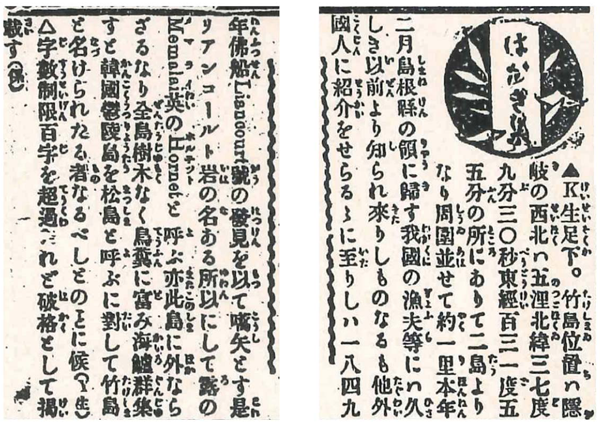 はがき集
▲K生足下。竹島位置ハ隱
岐の西北ハ五浬北緯三七度
九分三〇秒東經百三一度五
五分の所にありて二島より
なり周圍並せて約一里本年
二月島根縣の領に歸す我國の漁夫等にハ久
しき以前より知られ來りしものなるも他外
國人に紹介をせらるゝに至りしハ一八四九
年佛船Liancourt號の發見を以て嚆矢とす是
リアンコールト岩の名ある所以にして露の
Menalai英のHornetと呼ぶ亦此島に外なら
ざるなり全島樹木なく鳥糞に富み海鱸群集
すと韓國鬱陵島を松島と呼ぶに對して竹島
と名けられたる者なるべしとのとに候(?生)
△字數制限百字を超過したれど破格として掲
載す(係)